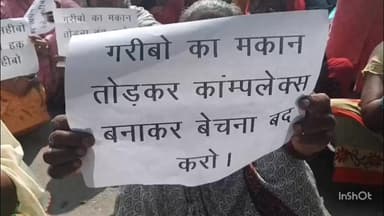 गरीबो का मकान
तोड़कर कांम्पलेक्स
बनाकर बेचना बद
करो।
गरीबो का मकान
हक
InShOt